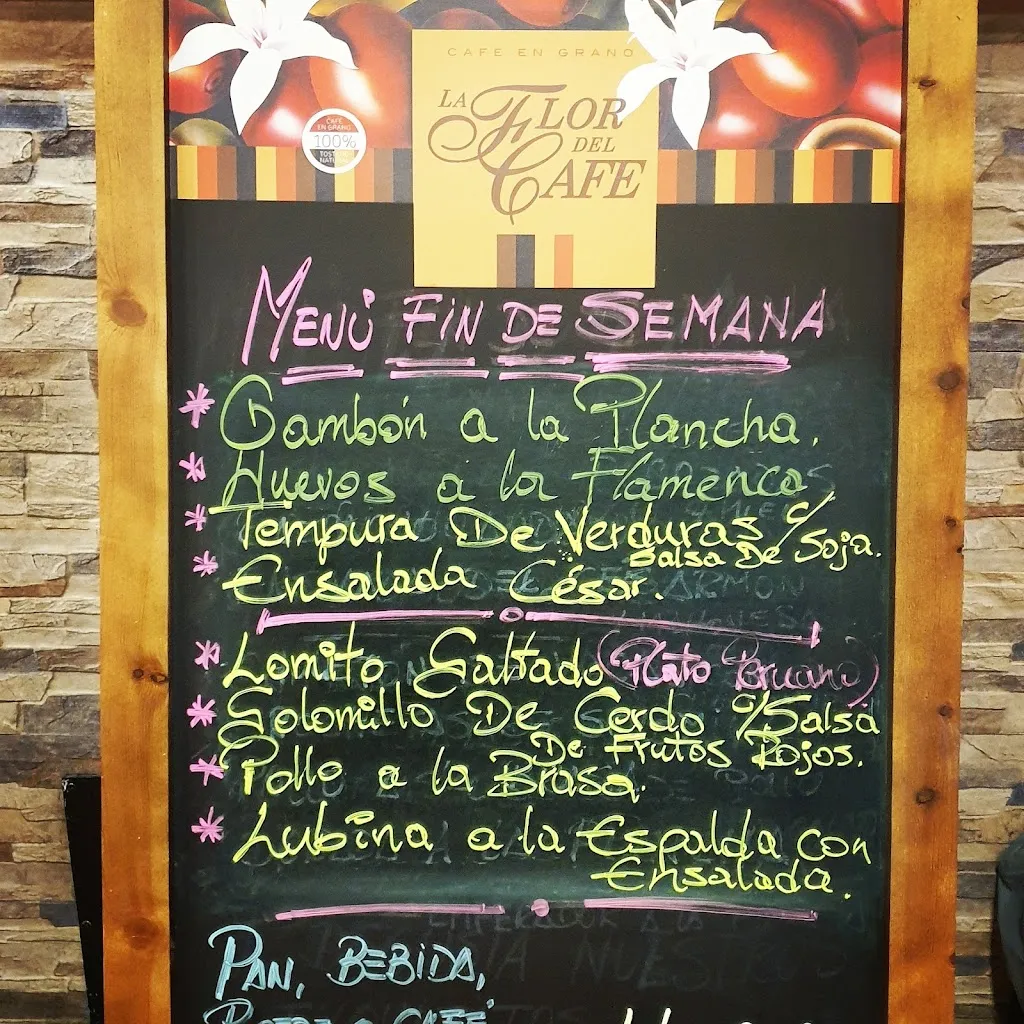 CAFE EN GRANO
LA FLOR
DEL
CAFE
CAFE
EN GRANO
100%
MENÚ FIN DE SEMANA
* Gambón a la Plancha.
* Huevos a la Flamenca,
* Tempura De Verduras c/
Salsa De Soja.
* Ensalada César.
* Lomito Saltado (Plato Peruano)
* Solomillo De Cerdo c/Salsa
De Frutos Rojos.
* Pollo a la Brasa.
* Lubina a la Espalda con
Ensalada.
PAN, BEBIDA,
CAFÉ